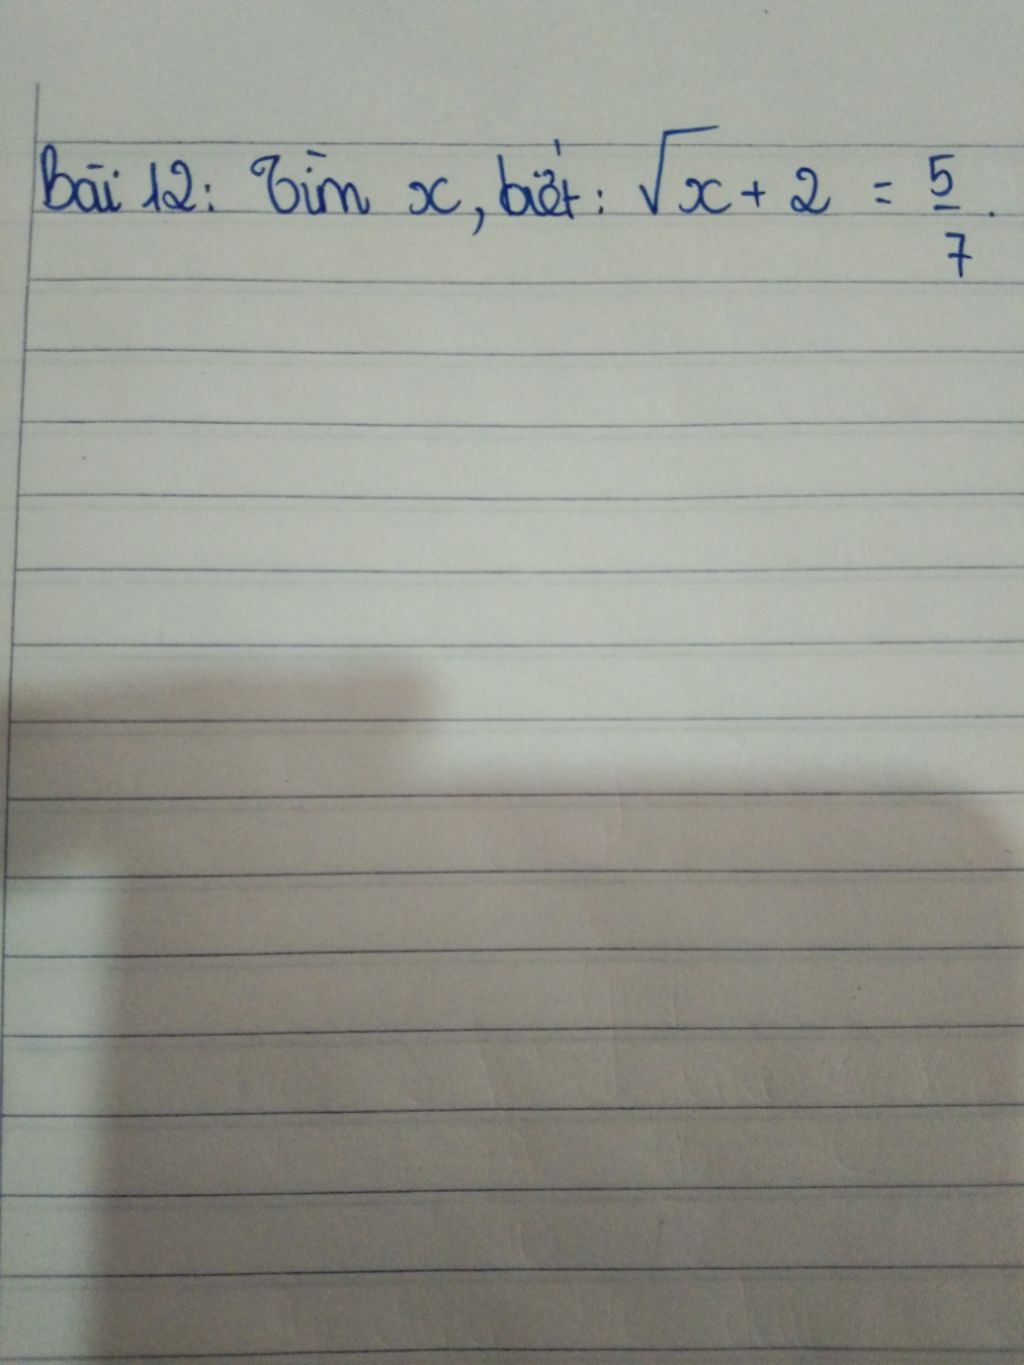 Bài 12: Tìm x, biết: √x + 2 = 5/7.